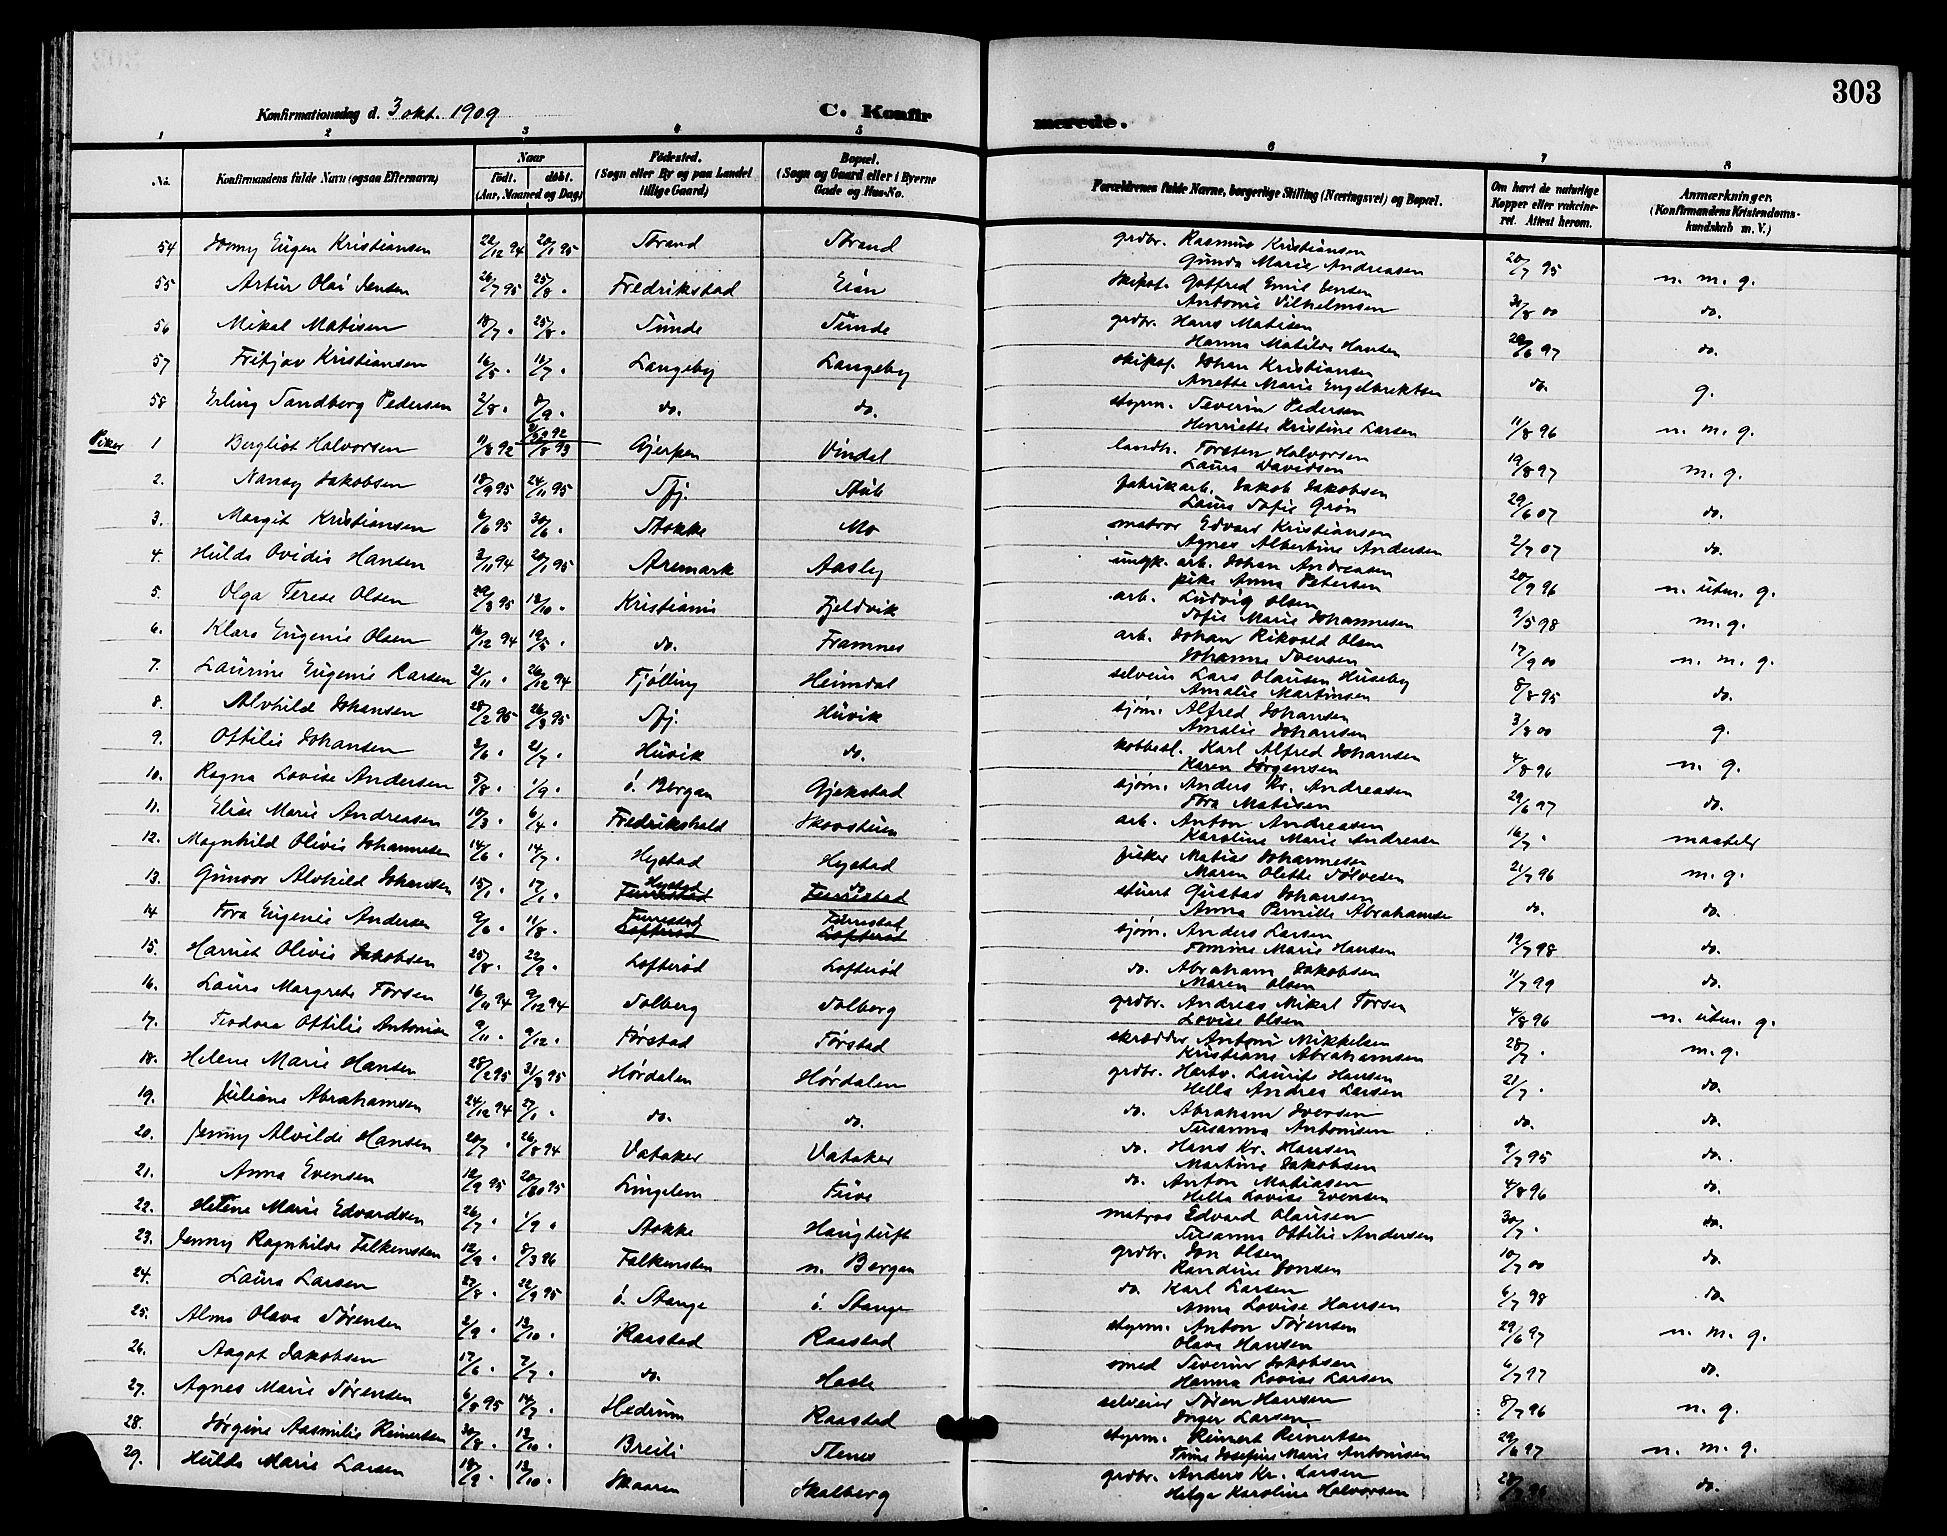 303
Konfirmationsdag d. 3 okt. 1909
C. Konfirmerede.
1 2 3 4 5 6 7 8
No. Konfirmandens fulde Navn (ogsaa Efternavn) Naar født. døbt. (Aar, Maaned og Dag) Fødested. (Sogn eller By og paa Landet tillige Gaard) Bopæl. (Sogn og Gaard eller i Byerne Gade og Hus-No. Forældrenes fulde Navne, borgerlige Stilling (Næringsvei) og Bopæl. Om havt de naturlige Kopper eller vakcineret. Attest herom. Anmærkninger. (Konfirmandens Kristendomskundskab m. V.)
54 Jonny Eugen Kristiansen 22/12 94 20/1 95 Strand Strand grdbr. Rasmus Kristiansen 20/7 95 n. m. g.
Gunda Marie Andreasen
55 Artur Olai Jensen 26/7 95 25/8 . Fredrikstad Eian skipsf. Gotfred Emil Jensen 31/8 00 do.
Antonie Vilhelmsen
56 Mikal Matisen 18/7 . 25/8 . Sunde Sunde grdbr. Hans Matisen 28/6 97 do.
Hanna Matilde Hansen
57 Fritjov Kristiansen 16/5 . 18/7 . Langeby Langeby skipsf. Johan Kristiansen do. g.
Anette Marie Engelbrektsen
58 Erling Sandberg Pedersen 2/8 . 8/9 . do. do. styrm. Severin Pedersen 11/8 96 n. m. g.
Henriette Kristine Larsen
Piker 1 Bergliot Halvorsen 11/8 92 Gjerpen Vindal landh. Torsten Halvorsen 19/8 97 m. g.
Laura Davidsen
2. Nancy Jakobsen 18/9 95 24/11 95 Sfj. Stub fabrikarb. Jakob Jakobsen 29/6 07 do.
Laura Sofie Grøn
3. Margit Kristiansen 6/6 95 30/6 . Stokke Mo matros Edvard Kristiansen 2/7 07 do.
Agnes Albertine Andersen
4. Hulda Ovidia Hansen 3/11 94 20/1 95 Aremark Aasly ungk. arb. Johan Andreasen 20/9 96 n. utm. g.
pike Anna Petersen
5. Olga Terese Olsen 22/3 95 13/10 . Kristiania Fjeldvik arb. Ludvig Olsen 9/5 98 m. g.
Sofie Marie Johannesen
6. Klara Eugenie Olsen 16/12 94 19/5 . do. Framnes arb. Johan Rikvold Olsen 17/9 00 n. m. g.
Johanna Svensen
7. Laurine Eugenie Larsen 21/11 . 26/12 94 Tjølling Heimdal selveier Lars Olausen Huseby 8/8 95 do.
Amalie Martinsen
8. Alvhild Johansen 28/2 95 26/3 95 Sfj. Huvik sjøm. Alfred Johansen 3/8 00 g.
Amalie Johansen
9. Ottilie Johansen 3/6 . 21/7 . Huvik do. kobbesl. Karl Alfred Johansen 4/8 96 n. g.
Karen Jørgensen
10. Ragna Lovise Andersen 5/8 . 1/9 . ö. Bergan Gjekstad sjøm. Anders Kr. Andreasen 29/6 97 do.
Tora Matisen
11. Elise Marie Andreasen 10/3 . 6/4 . Fredrikshald Skovstuen arb. Anton Andreasen 16/7 . maatelig
Karoline Marie Andreasen
12. Magnhild Olivia Johannesen 14/6 . 14/7 . Hystad Hystad fisker Matias Johannesen 21/7 96 m. g.
Maren Olette Sølvesen
13. Gunvor Alvhild Johansen 15/1 . 17/1 . Hystad do. stuert Gustav Johansen do. do.
Furustad Furustad
Anna Pernille Abrahamsen
14 Tora Eugenie Andersen 9/6 . 11/8 . Furustad Furustad sjøm. Anders Larsen 19/7 98 do.
Lofterød Lofterød
Tomine Marie Hansen
15. Harriet Olivia Jakobsen 25/8 . 22/9 . Lofterød Lofterød do. Abraham Jakobsen 11/7 99 do.
Maren Olsen
16. Laura Margrete Torsen 16/11 94 9/12 94 Solberg Solberg grdbr. Andreas Mikal Torsen 4/8 96 n. utm. g.
Lovise Olsen
17. Teodora Ottilie Antonisen 9/11 . 9/12 . Førstad Førstad skrædder Antoni Mikkelsen 28/7 . m. g.
Kristiane Abrahamsen
18. Helene Marie Hansen 28/2 95 31/3 95 Hørdalen Hørdalen grdbr. Hartv. Laurits Hansen 21/7 . do.
Hella Andrea Larsen
19. Juliane Abrahamsen 24/12 94 27/1 . do. do. do. Abraham Iversen do. do.
Susanna Antonisen
20. Jenny Alvilde Hansen 20/7 . 26/8 94 Vataker Vataker do. Hans Kr. Hansen 9/7 95 do.
Martine Jakobsen
21. Anna Evensen 12/9 95 20/10 95 Lingelem Fuve do. Anton Matiasen 4/8 96 do.
Hella Lovise Evensen
22. Helene Marie Edvardsen 26/7 . 1/9 . Stokke Haugtuft matros Edvard Olausen 30/7 . do.
Susanna Ottilie Andersen
23. Jenny Ragnhilda Falkensten 12/9 . 8/3 96 Falkensten n. Bergan grdbr. Jon Olsen 10/7 00 do.
Randine Jonsen
24. Laura Larsen 27/8 . 22/9 95 ö. Stange ö. Stange do. Karl Larsen 6/7 98 do.
Anna Lovise Hansen
25. Alma Olava Sørensen 2/9 . 13/10 . Raastad Raastad styrm. Anton Sørensen 29/6 97 n. m. g.
Olava Hansen
26. Aagot Jakobsen 17/6 . 7/7 . do. Hasle smed Severin Jakobsen 6/7 97 do.
Hanna Lovise Larsen
27. Agnes Marie Sørensen 6/8 95 14/7 . Hedrum Raastad selveier Søren Hansen 8/7 96 n. g.
Inger Larsen
28. Jørgine Aasmilie Reinertsen 30/8 . 13/10 . Breili Stenes styrm. Reinert Reinertsen 29/6 97 n. m. g.
Trine Josefine Marie Antonisen
29. Hulda Marie Larsen 18/9 . 13/10 . Skaaren Skalberg grdbr. Anders Kr. Larsen do.
Helga Karoline Halvorsen